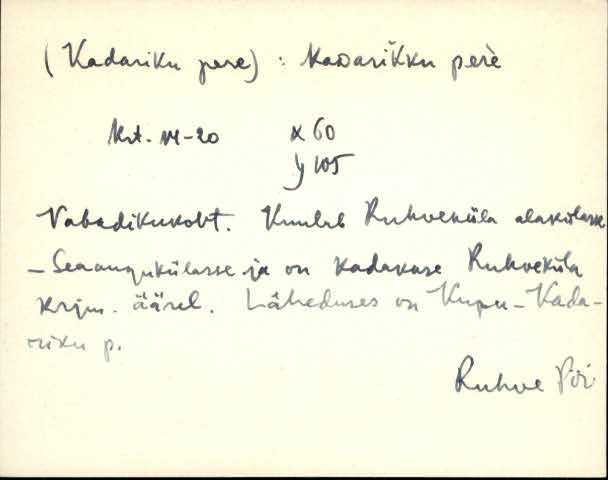 (Kadariku pere) : kaᴅariˋk̆ku pere͐
x 60
y 105
Vabadikukoht. Kuulub Ruhveküla alakülasse
- Seaaugukülasse ja on Kadakase Ruhveküla
krjm. äärel. Läheduses on Kupu-Kada-
riku p.
Ruhve Pöi